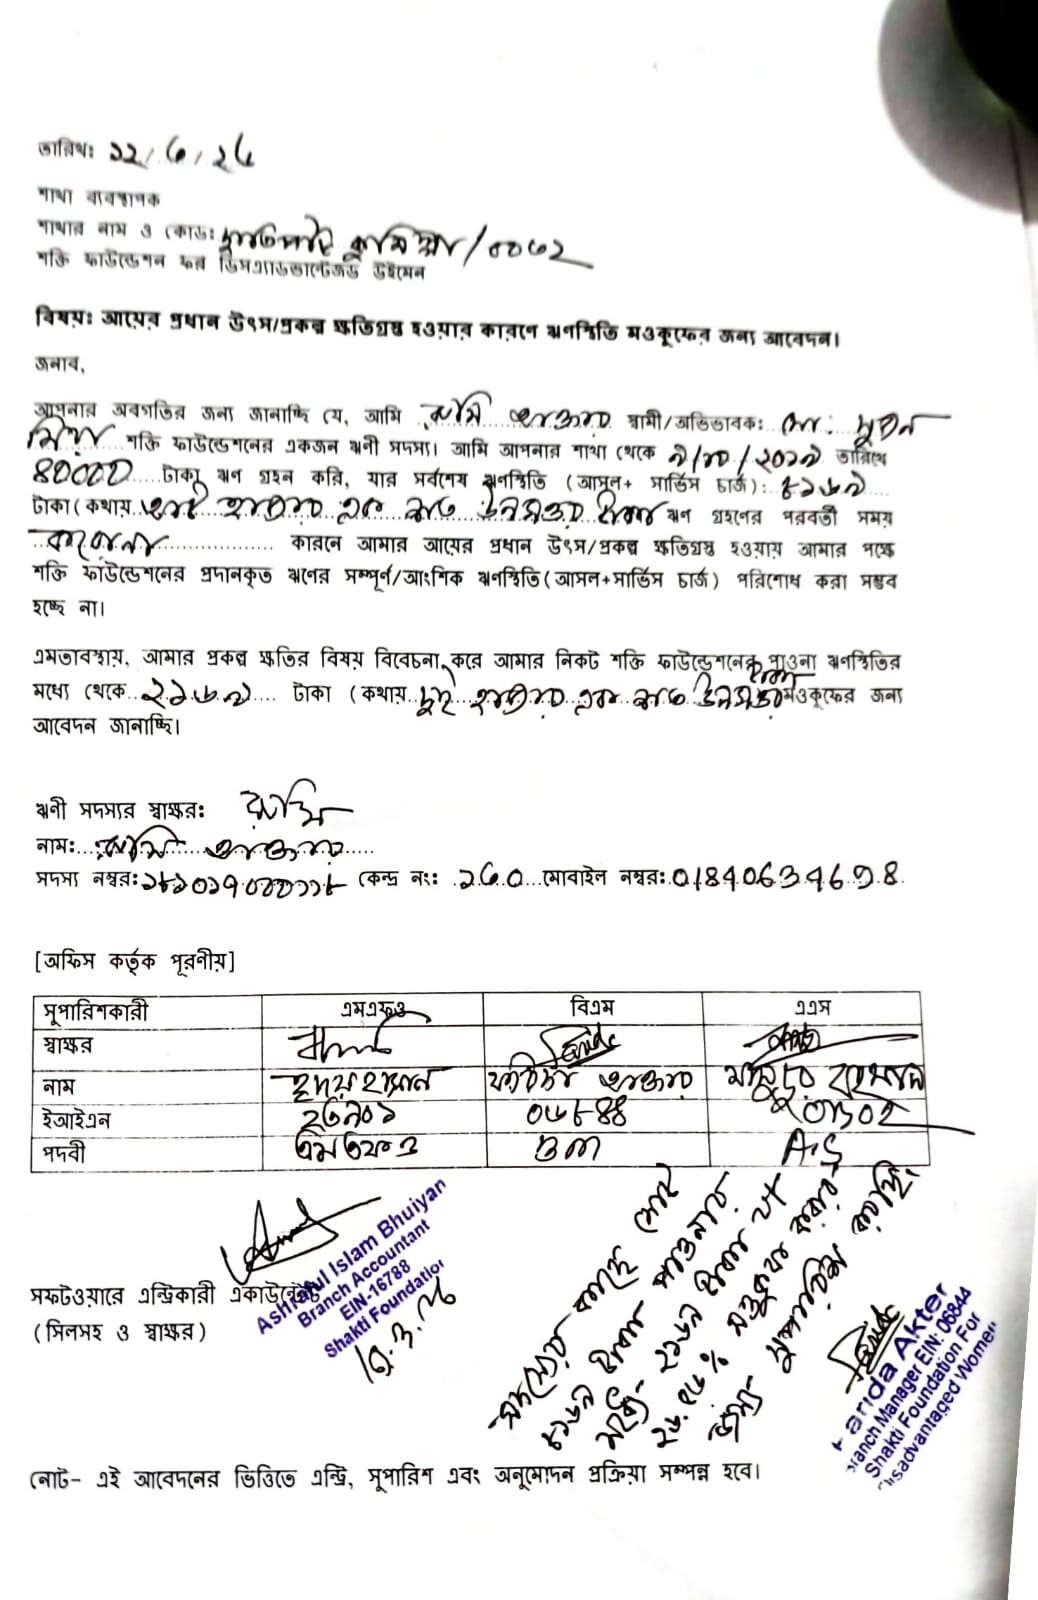 তারিখঃ ১২/৩/২৬
শাখা ব্যবস্থাপক
শাখার নাম ও কোডঃ কুমিল্লা/০০৩২
শক্তি ফাউন্ডেশন ফর ডিসএ্যাডভান্টেজড উইমেন
বিষয়ঃ আয়ের প্রধান উৎস/প্রকল্প ক্ষতিগ্রস্ত হওয়ার কারণে ঋণস্থিতি মওকুফের জন্য আবেদন।
জনাব,
আপনার অবগতির জন্য জানাচ্ছি যে, আমি আক্তার স্বামী/অভিভাবক: মো:
মিয়া শক্তি ফাউন্ডেশনের একজন ঋণী সদস্য। আমি আপনার শাখা থেকে ৯/১০/২০১৯ তারিখে
৪০০০০ টাকা ঋণ গ্রহন করি, যার সর্বশেষ ঋণস্থিতি (আসল+ সার্ভিস চার্জ): ৮১৬৯
টাকা (কথায় হাজার এক শত উনসত্তর টাকা ঋণ গ্রহণের পরবর্তী সময়
করোনা কারনে আমার আয়ের প্রধান উৎস/প্রকল্প ক্ষতিগ্রস্ত হওয়ায় আমার পক্ষে
শক্তি ফাউন্ডেশনের প্রদানকৃত ঋণের সম্পূর্ণ/আংশিক ঋণস্থিতি(আসল+সার্ভিস চার্জ) পরিশোধ করা সম্ভব
হচ্ছে না।
এমতাবস্থায়, আমার প্রকল্প ক্ষতির বিষয় বিবেচনা করে আমার নিকট শক্তি ফাউন্ডেশনের পাওনা ঋণস্থিতির
মধ্যে থেকে ২১৬৯ টাকা (কথায় দুই হাজার এক শত উনসত্তর টাকা মওকুফের জন্য
আবেদন জানাচ্ছি।
ঋণী সদস্যর স্বাক্ষরঃ
নাম: আক্তার
সদস্য নম্বর: কেন্দ্র নং: ১৬০ মোবাইল নম্বর:
[অফিস কর্তৃক পূরণীয়]
সুপারিশকারী এমএফও বিএম এএস
স্বাক্ষর
নাম হৃদয় হাসান ফরিদা আক্তার মাহবুবুর রহমান
ইআইএন ০৬৮৪৪
পদবী এমএফও BM A.S
সফটওয়ারে এন্ট্রিকারী একাউন্টেন্ট
(সিলসহ ও স্বাক্ষর)
Ashraful Islam Bhuiyan
Branch Accountant
EIN-16788
Shakti Foundation
সদস্যের কাছে মোট
৮১৬৯ টাকা পাওনার
মধ্যে ২১৬৯ টাকা বা
২৬.৫৬% মওকুফ করার
জন্য সুপারিশ করছি।
Farida Akter
Branch Manager EIN: 06844
Shakti Foundation For
Disadvantaged Women
নোট- এই আবেদনের ভিত্তিতে এন্ট্রি, সুপারিশ এবং অনুমোদন প্রক্রিয়া সম্পন্ন হবে।